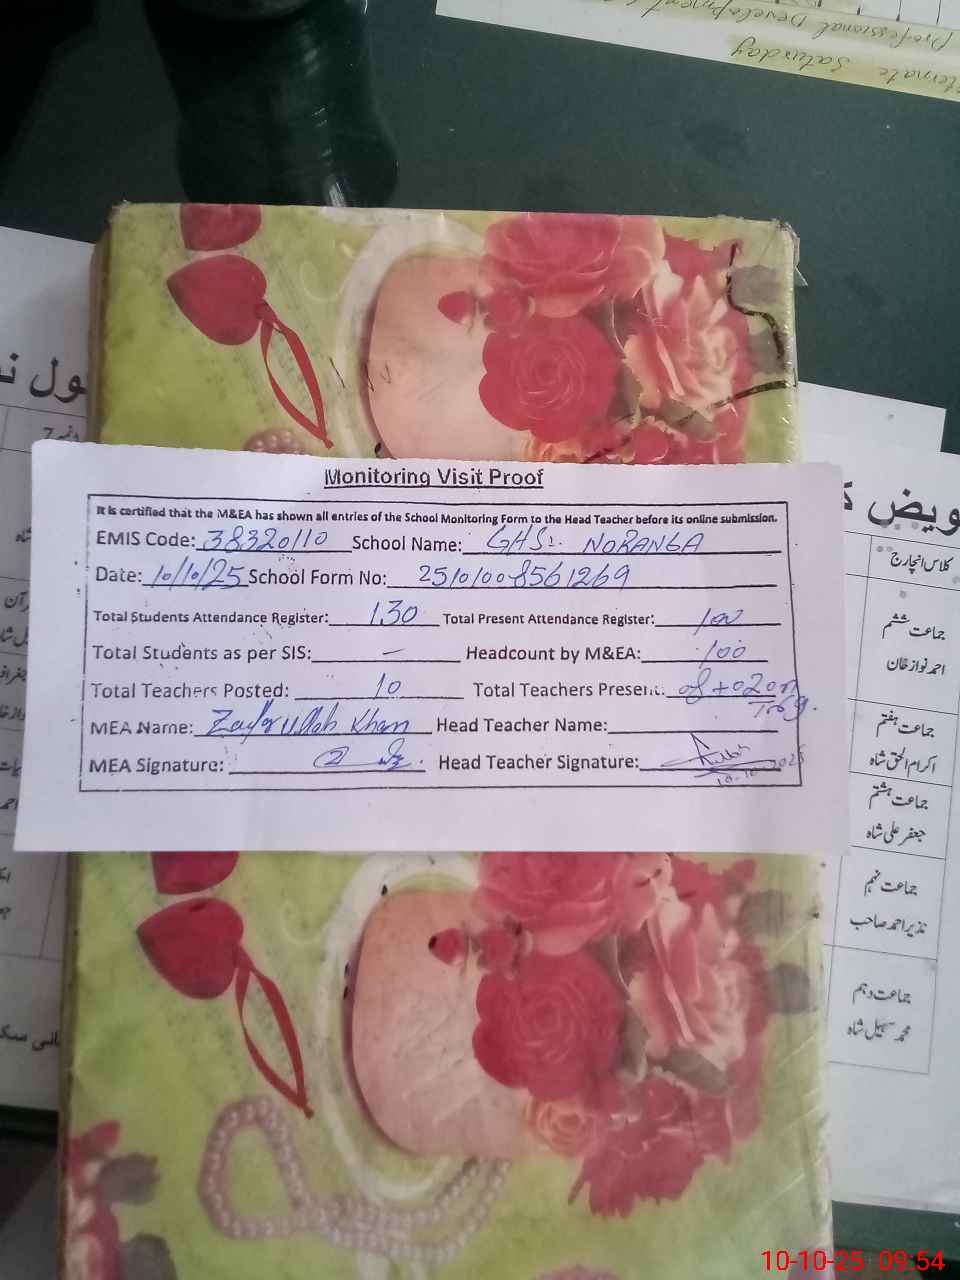 Alternate Saturday
Professional Development
Monitoring Visit Proof
It is certified that the M&EA has shown all entries of the School Monitoring Form to the Head Teacher before its online submission.
EMIS Code: 38320110 School Name: GHS NORANGA
Date: 10/10/25 School Form No: 25101008561269
Total Students Attendance Register: 130 Total Present Attendance Register: 100
Total Students as per SIS: — Headcount by M&EA: 100
Total Teachers Posted: 10 Total Teachers Present: 08+02 on
Trg.
MEA Name: Khan Head Teacher Name:
MEA Signature: Head Teacher Signature:
10-10-2025
کلاس انچارج
جماعت ششم
احمد نواز خان
جماعت ہفتم
اکرام الحق شاہ
جماعت ہشتم
جعفر علی شاہ
جماعت نہم
نذیر احمد صاحب
جماعت دہم
محمد سہیل شاہ
10-10-25 09:54